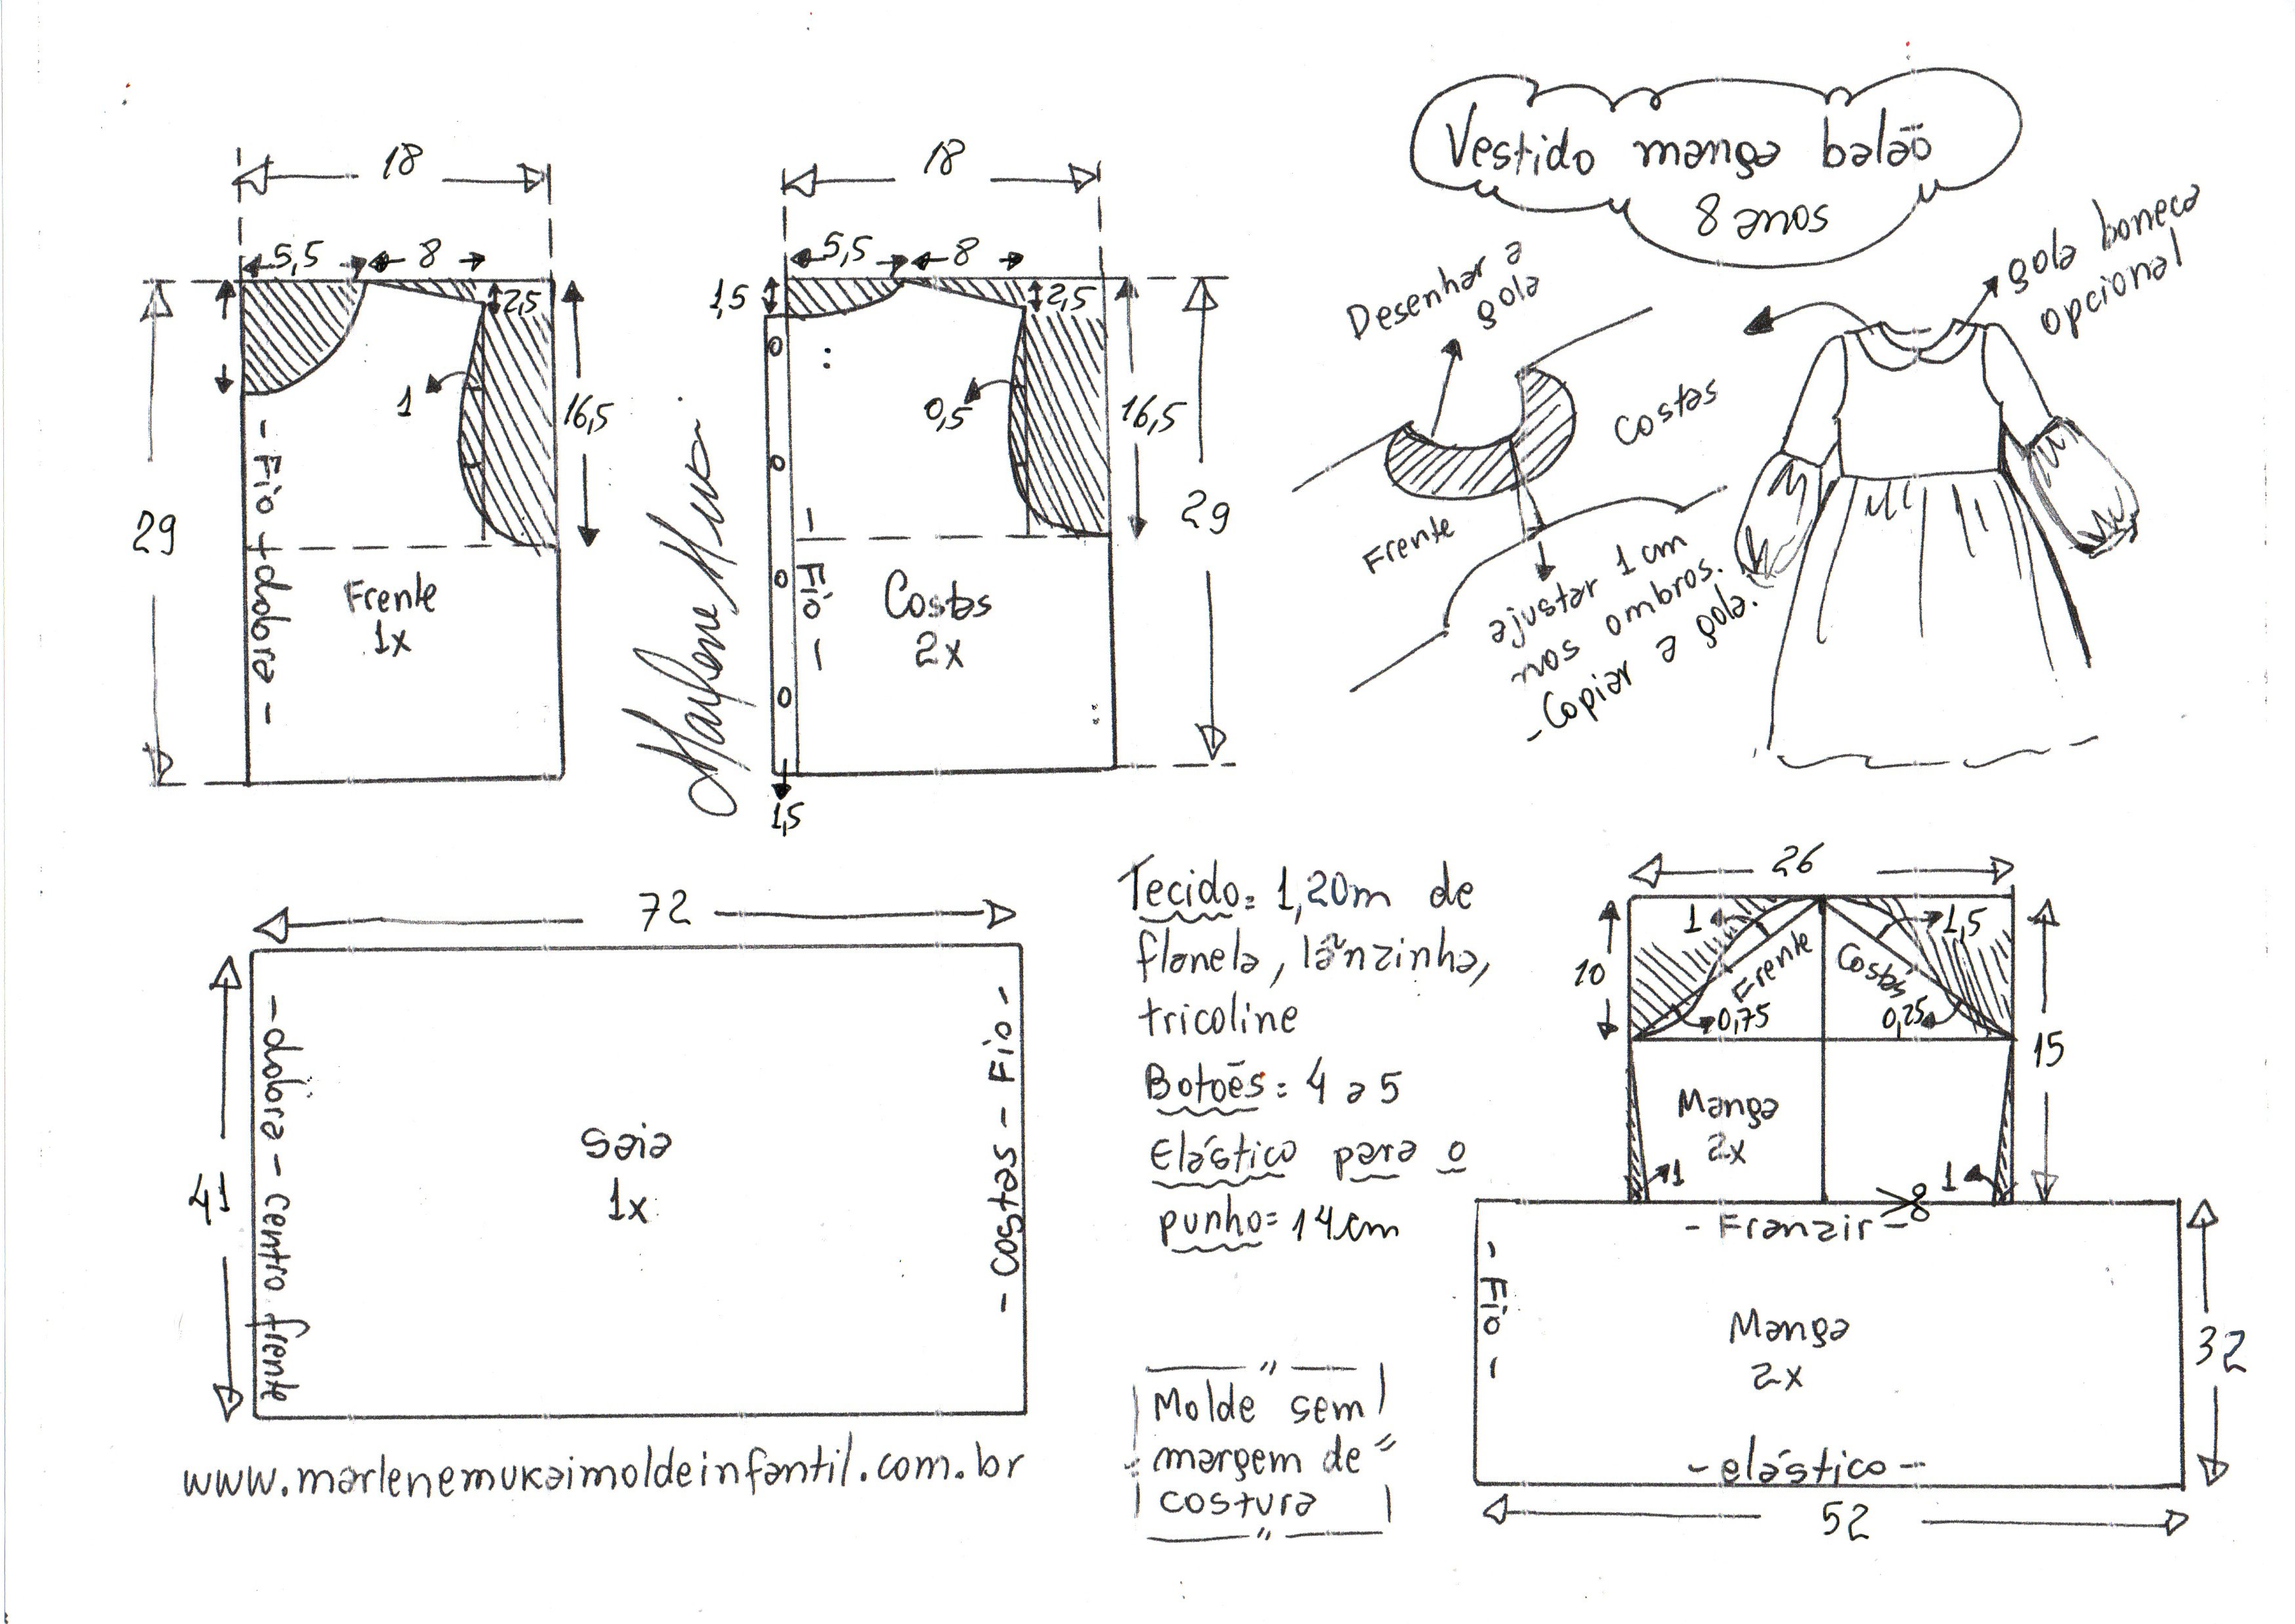 Vestido manga balão
8 anos
18
5,5
8
2,5
1
16,5
29
- Fio + dobra -
Frente
1x
18
5,5
8
1,5
2,5
0,5
16,5
29
- Fio -
Costas
2x
1,5
Desenhar a
gola
Costas
Frente
ajustar 1 cm
nos ombros.
- Copiar a gola.
gola boneca
opcional
72
41
- dobra - centro frente
Saia
1x
- costas - Fio -
www.marlenemukaimoldeinfantil.com.br
Tecido= 1,20m de
flanela, lãnzinha,
tricoline
Botões= 4 a 5
Elástico para o
punho= 14cm
Molde sem
margem de
costura
26
1
1,5
10
Frente
Costas
0,75
0,25
15
Manga
2x
1
1
- Franzir -
- Fio -
Manga
2x
32
- elástico -
52